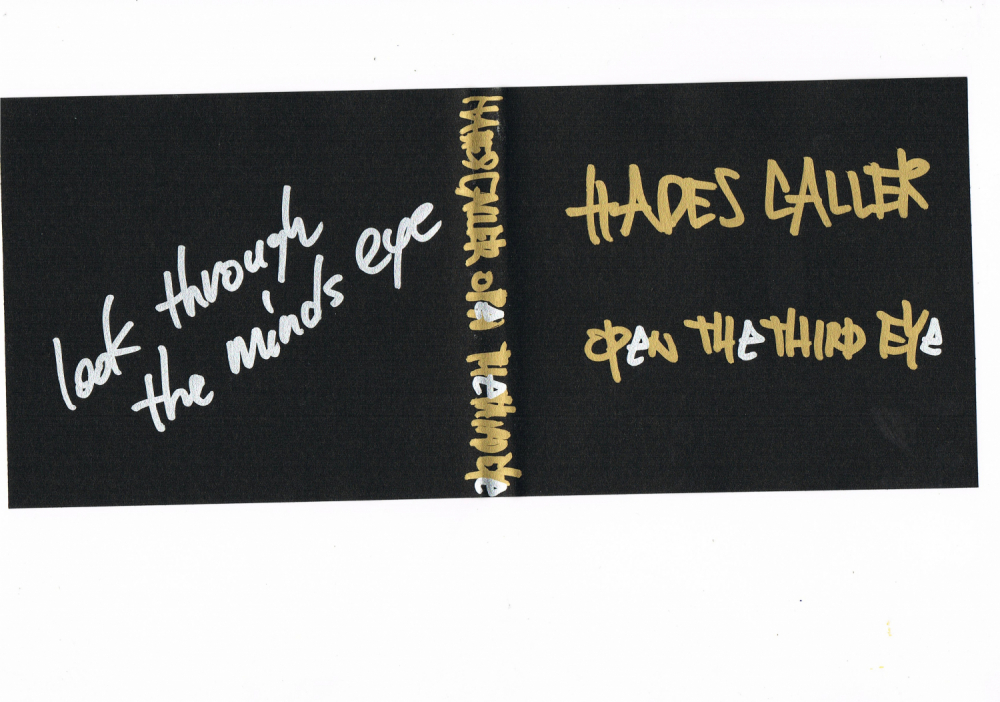 look through
the minds eye
HADES CALLER OPeN THe THIRD EYe
HADES CALLER
OPeN THe THIRD EYe